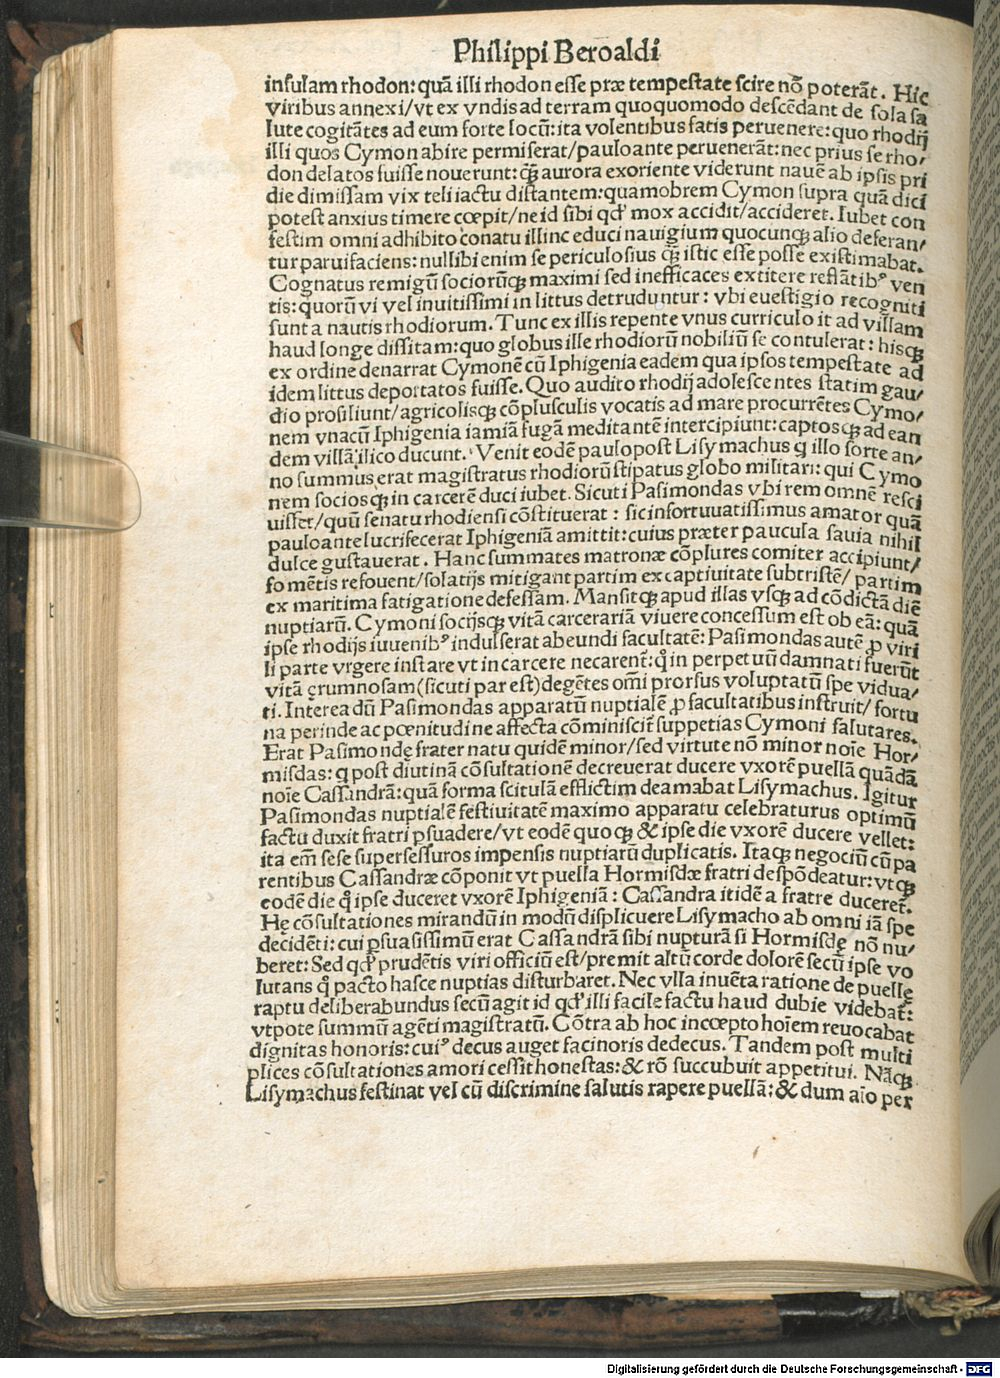 Philippi Beroaldi
insulam rhodon: quā illi rhodon esse præ tempestate scire nō poterāt. Hic
viribus annexi/vt ex vndis ad terram quoquomodo descēdant de sola sa
lute cogitātes ad eum forte locū: ita volentibus fatis peruenere: quo rhodij
illi quos Cymon abire permiserat/pauloante peruenerāt: nec prius se rho/
don delatos fuisse nouerunt: qꝫ̄ aurora exoriente viderunt nauē ab ipsis pri
die dimissam vix teli iactu distantem: quamobrem Cymon supra quā dici
potest anxius timere cœpit/ne id sibi qđ mox accidit/accideret. Iubet con
festim omni adhibito conatu illinc educi nauigium quocunqꝫ alio deferan/
tur paruifaciens: nullibi enim se periculosius qꝫ̄ istic esse posse existimabat.
Cognatus remigū sociorūqꝫ maximi sed inefficaces extitere reflātibꝰ ven
tis: quorū vi vel inuitissimi in littus detruduntur: vbi euestigio recogniti
sunt a nautis rhodiorum. Tunc ex illis repente vnus curriculo it ad villam
haud longe dissitam: quo globus ille rhodiorū nobiliū se contulerat: hisqꝫ
ex ordine denarrat Cymonē cū Iphigenia eadem qua ipsos tempestate ad
idem littus deportatos fuisse. Quo audito rhodij adolescentes statim gau/
dio prosiliunt/agricolisqꝫ cōplusculis vocatis ad mare procurrētes Cymo/
nem vnacū Iphigenia iamiā fugā meditantē intercipiunt: captosqꝫ ad ean
dem villā ilico ducunt. Venit eodē paulopost Lisymachus q illo forte an/
no summus erat magistratus rhodiorū stipatus globo militari: qui Cymo
nem sociosqꝫ in carcerē duci iubet. Sicuti Pasimondas vbi rem omnē resci
uisset/quū senatu rhodiensi cōstituerat: sic infortuuatissimus amator quā
pauloante lucrifecerat Iphigeniā amittit: cuius præter paucula sauia nihil
dulce gustauerat. Hanc summates matronæ cōplures comiter accipiunt/
fomētis refouent/solatijs mitigant partim ex captiuitate subtristē/ partim
ex maritima fatigatione defessam. Mansitqꝫ apud illas vsqꝫ ad cōdictā diē
nuptiarū. Cymoni socijsqꝫ vitā carcerariā viuere concessum est ob eā: quā
ipse rhodijs iuuenibꝰ indulserat abeundi facultatē: Pasimondas autē ꝓ viri
li parte vrgere instare vt in carcere necarent̄: qͥ in perpetuū damnati fuerūt
vitā ęrumnosam (sicuti par est) degētes omī prorsus voluptatū spe vidua/
ti. Interea dū Pasimondas apparatū nuptialē ꝓ facultatibus instruit/ fortu
na perinde ac pœnitudine affecta cōminiscit̄ suppetias Cymoni salutares.
Erat Pasimondę frater natu quidē minor/sed virtute nō minor noīe Hor/
misdas: q post diutinā cōsultationē decreuerat ducere vxorē puellā quādā
noīe Cassandrā: quā forma scitulā efflictim deamabat Lisymachus. Igitur
Pasimondas nuptialē festiuitatē maximo apparatu celebraturus optimū
factu duxit fratri ꝑsuadere/vt eodē quoqꝫ & ipse die vxorē ducere vellet:
ita em̄ sese supersessuros impensis nuptiarū duplicatis. Itaqꝫ negociū cū pa
rentibus Cassandræ cōponit vt puella Hormisdæ fratri despōdeatur: vtqꝫ
eodē die qͦ ipse duceret vxorē Iphigeniā: Cassandra itidē a fratre duceret̄.
Hę cōsultationes mirandū in modū displicuere Lisymacho ab omni iā spe
decidēti: cui ꝑsuasissimū erat Cassandrā sibi nupturā si Hormisdę nō nu/
beret: Sed qđ prudētis viri officiū est/premit altū corde dolorē secū ipse vo
lutans qͦ pacto hasce nuptias disturbaret. Nec vlla inuēta ratione de puellę
raptu deliberabundus secū agit id qđ illi facile factu haud dubie videbat̄:
vtpote summū agēti magistratū. Cōtra ab hoc incœpto hoīem reuocabat
dignitas honoris: cuiꝰ decus auget facinoris dedecus. Tandem post multi
plices cōsultationes amori cessit honestas: & rō succubuit appetitui. Nāqꝫ
Lisymachus festinat vel cū discrimine salutis rapere puellā: & dum aīo per
Digitalisierung gefördert durch die Deutsche Forschungsgemeinschaft - DFG